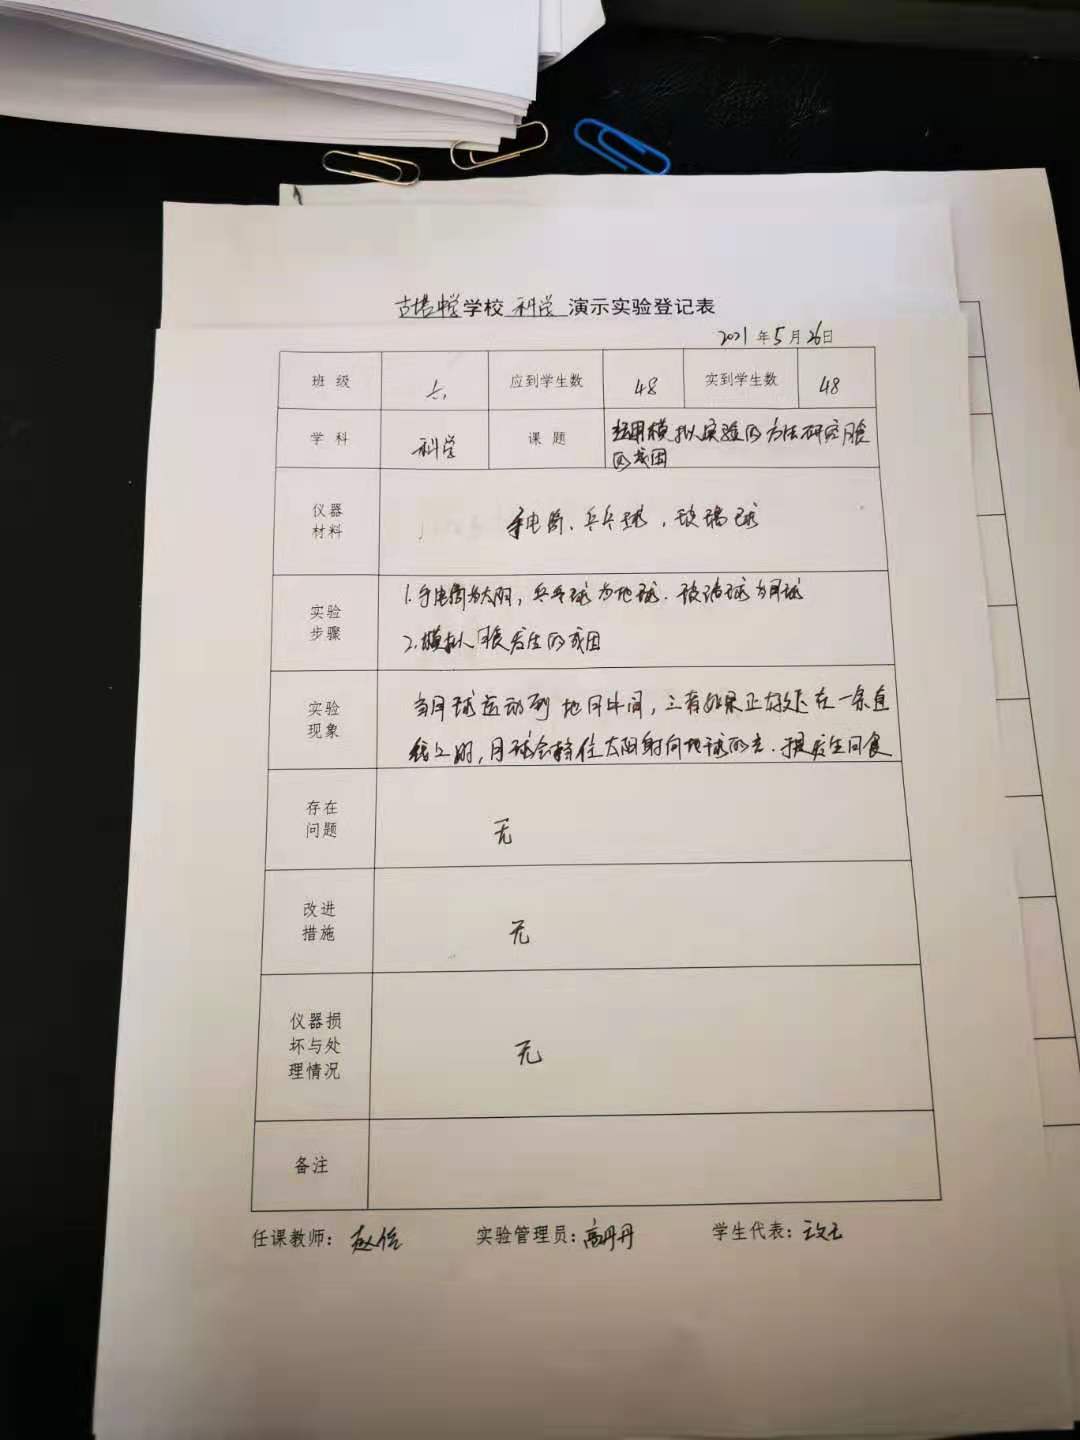 古塔中学学校 科学 演示实验登记表
2021年5月26日
班级 七. 应到学生数 48 实到学生数 48
学科 科学 课题 运用模拟实验的方法研究月食
的成因
仪器
材料
手电筒、乒乓球,玻璃球
实验
步骤
1.手电筒为太阳,乒乓球为地球.玻璃球为月球
2.模拟月食发生的成因
实验
现象
当月球运动到地日中间,三者如果正好处在一条直
线上时,月球会挡住太阳射向地球的光.发生日食
存在
问题
无
改进
措施
无
仪器损
坏与处
理情况
无
备注
任课教师: 赵 实验管理员:高丹丹 学生代表: